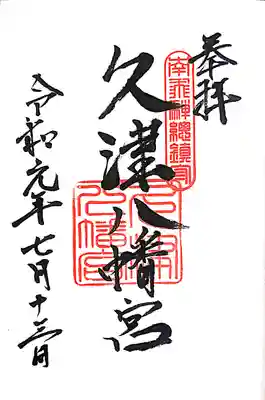 奉拝
久津八幡宮
令和元年七月十三日